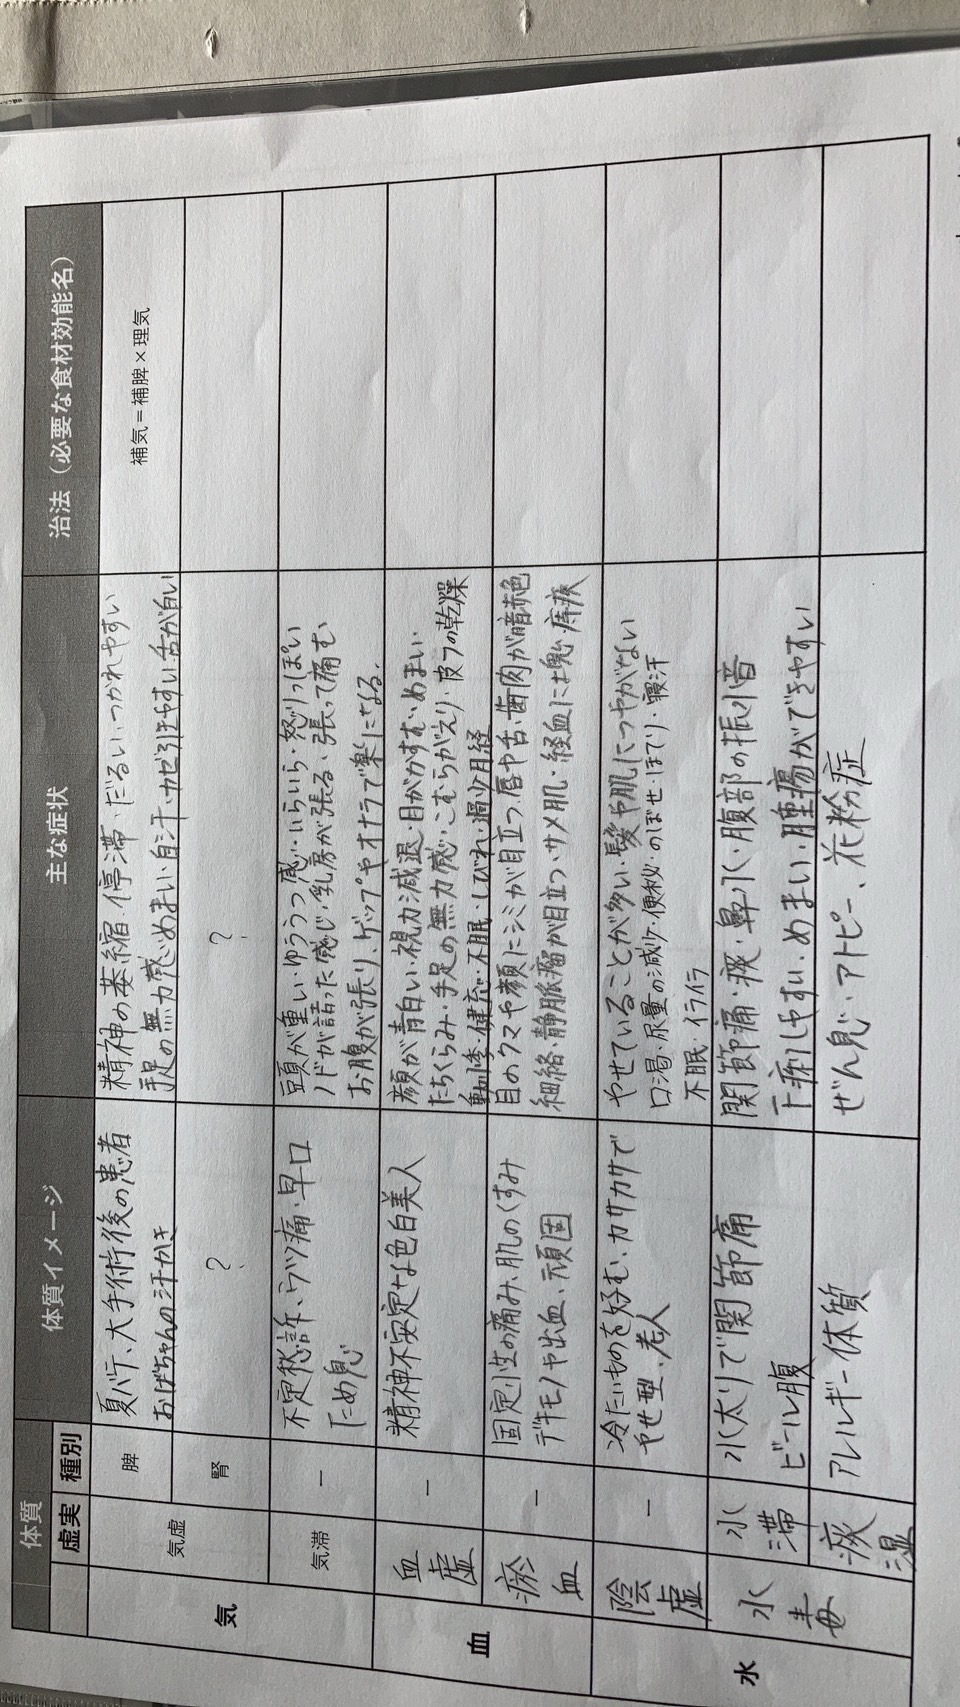 体質
虚実 種別 体質イメージ 主な症状 治法（必要な食材効能名）
気
気虚
脾
夏バテ、大手術後の患者
おばちゃんの汗かき
精神の萎縮・停滞・だるい・つかれやすい
手足の無力感・めまい・自汗・カゼ引きやすい・舌が白い
補気＝補脾×理気
腎
？
？
気滞
－
不定愁訴、ウツ病・早口
ため息
頭が重い・ゆううつ感・いらいら・怒りっぽい
ノドが詰った感じ・乳房が張る・張って痛む
お腹が張り、ゲップやオナラで楽になる。
血
血虚
－
精神不安定な色白美人
顔が青白い・視力減退・目がかすむ・めまい
たちくらみ・手足の無力感・こむらがえり・皮フの乾燥
動悸・健忘・不眠・しびれ・過少月経
瘀血
－
固定性の痛み、肌のくすみ
デキモノや出血、頑固
目のクマや顔にシミが目立つ、唇や舌、歯肉が暗赤色
細絡・静脈瘤が目立つ・サメ肌・経血に塊・痔疾
水
陰虚
－
冷たいものを好む、カサカサで
やせ型、老人
やせていることが多い・髪や肌につやがない
口渇・尿量の減少・便秘・のぼせ・ほてり・寝汗
不眠・イライラ
水毒
水滞
水太りで関節痛
ビール腹
関節痛・痰・鼻水・腹部の振水音
下痢しやすい、めまい、腫瘍ができやすい
痰湿
アレルギー体質
ぜん息・アトピー、花粉症